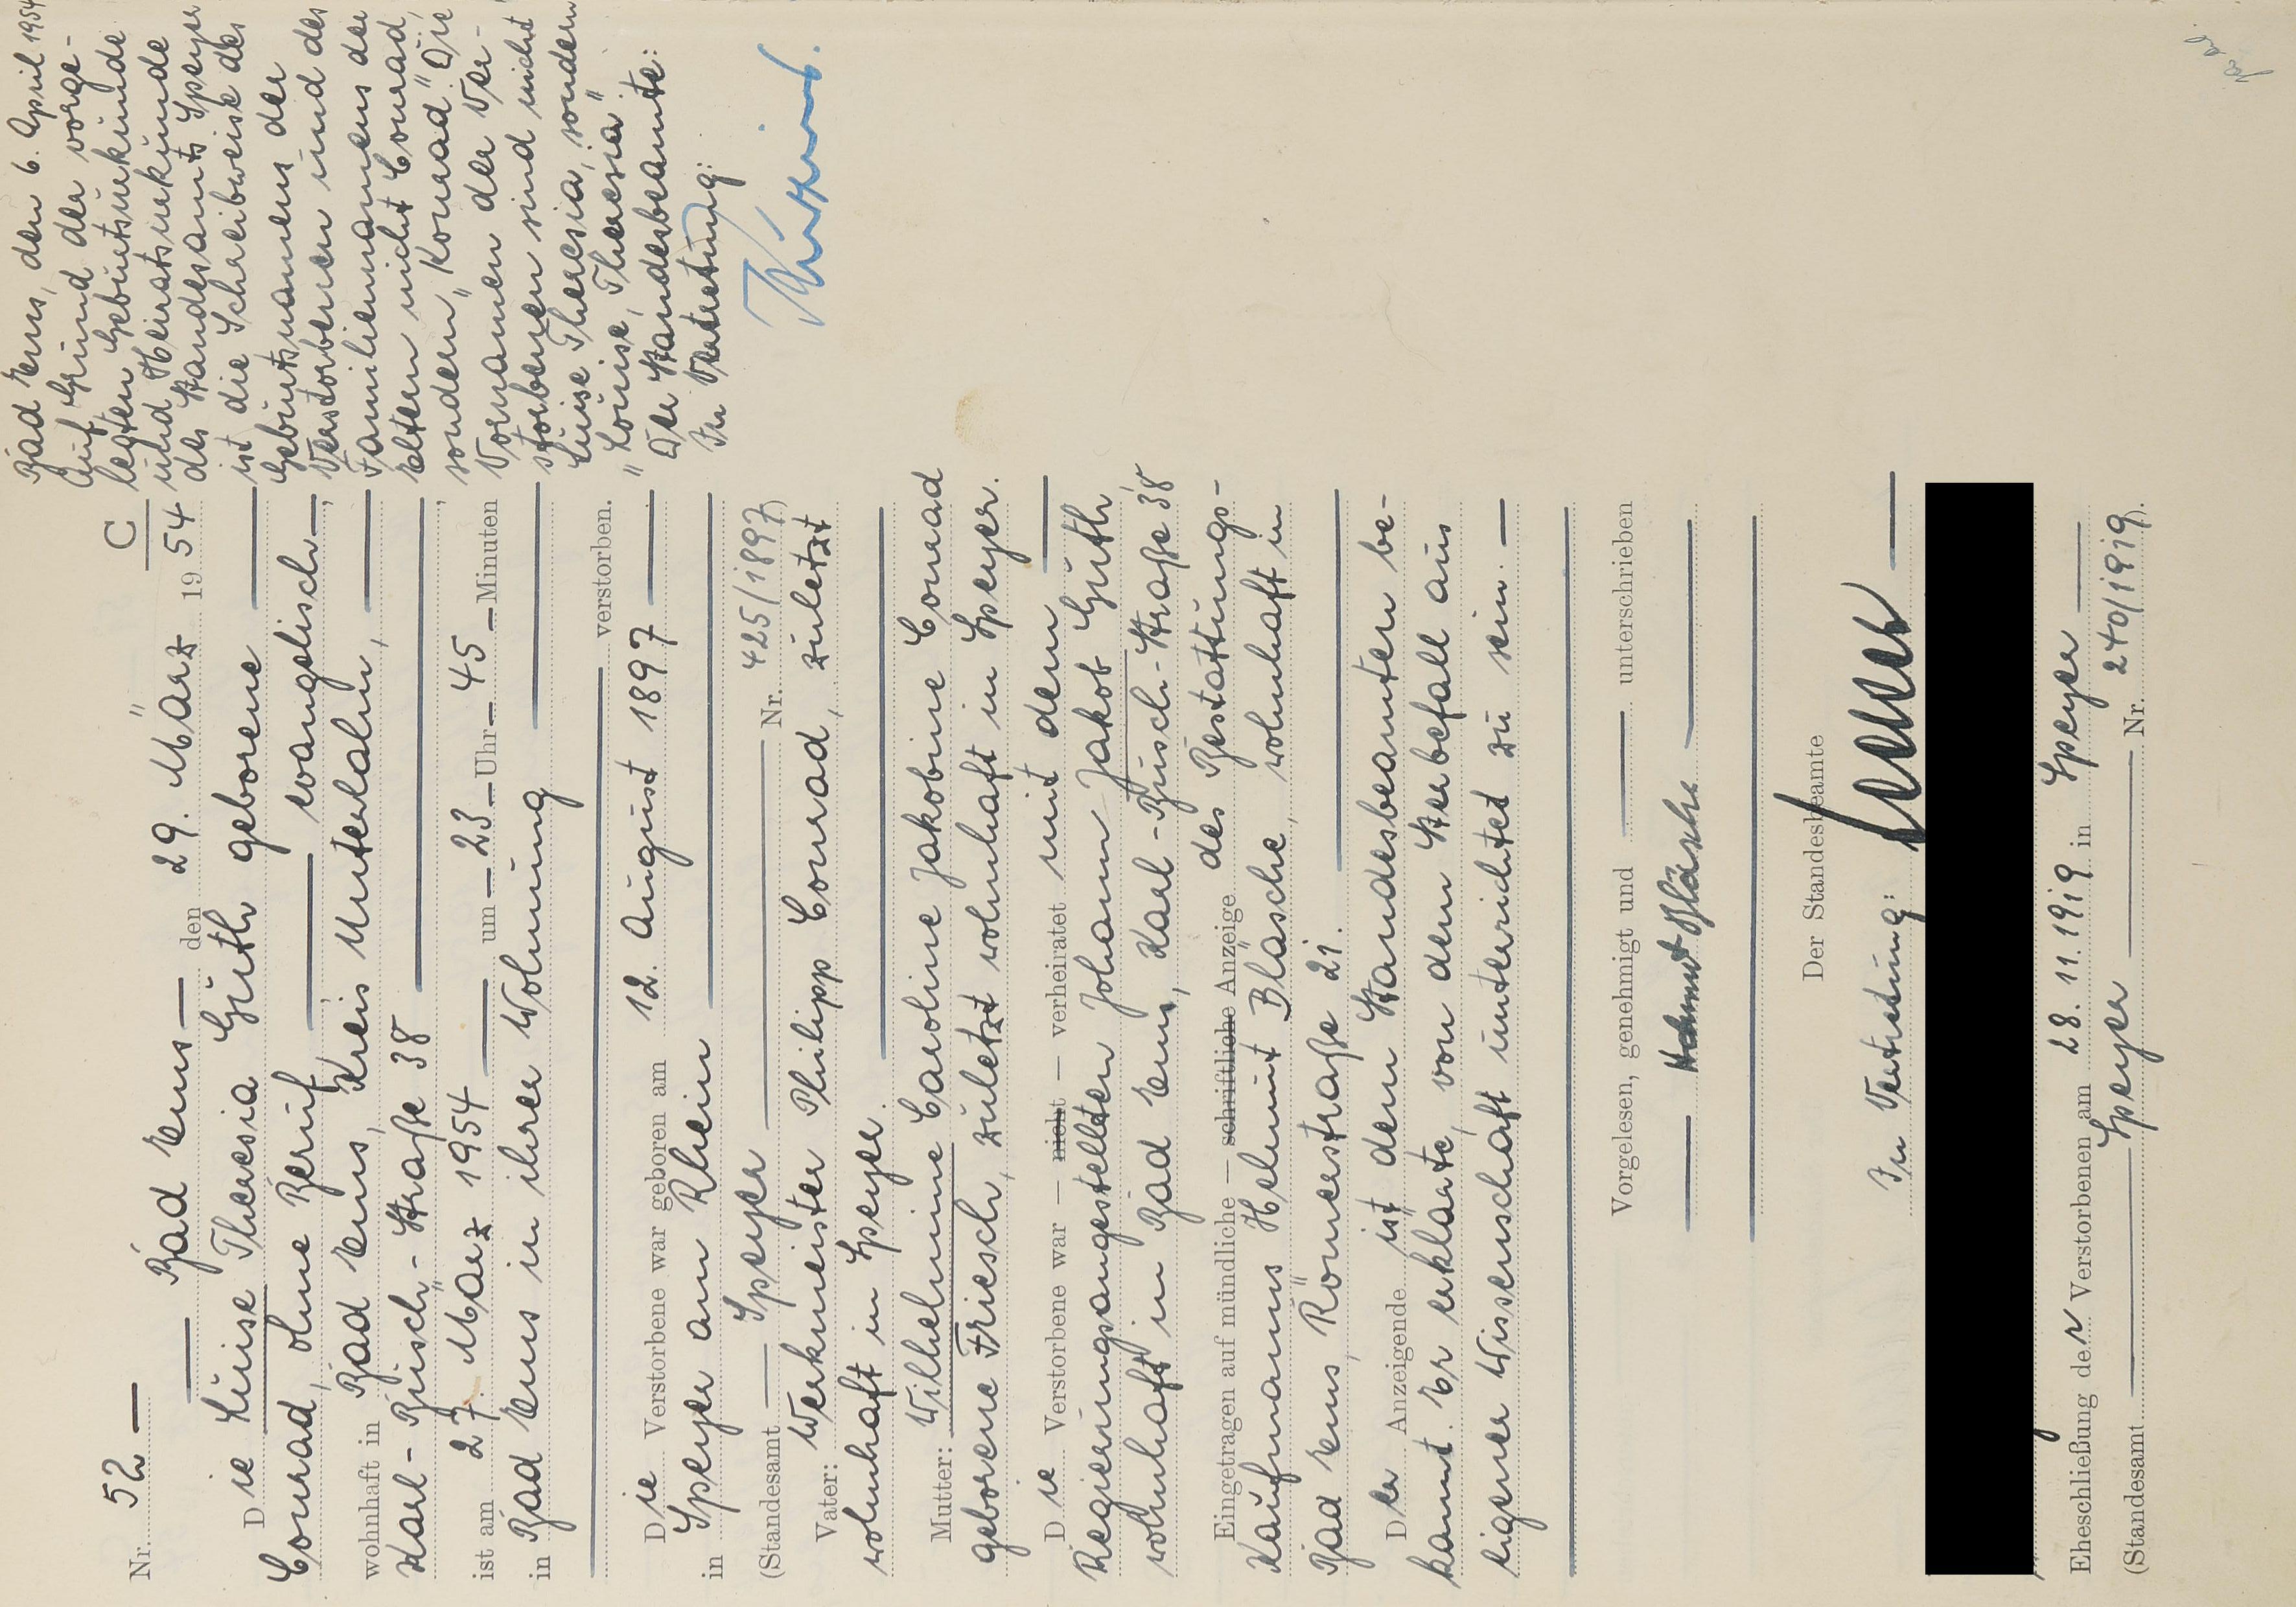 C
Nr. 52
Bad Ems den 29. März 1954
Die Luise Theresia Guth geborene
Conrad, ohne Beruf, evangelisch,
wohnhaft in Bad Ems, Kreis Unterlahn,
Karl-Busch-Straße 38,
ist am 27. März 1954 um 23 Uhr 45 Minuten
in Bad Ems in ihrer Wohnung
verstorben.
Die Verstorbene war geboren am 12. August 1897
in Speyer am Rhein
(Standesamt Speyer Nr. 425/1897)
Vater: Werkmeister Philipp Conrad, zuletzt
wohnhaft in Speyer.
Mutter: Wilhelmine Caroline Jakobine Conrad
geborene Friesch, zuletzt wohnhaft in Speyer.
Die Verstorbene war — nicht — verheiratet mit dem
Regierungsangestellten Johann Jakob Guth
wohnhaft in Bad Ems, Karl-Busch-Straße 38
Eingetragen auf mündliche — schriftliche Anzeige des Bestattungs-
Kaufmanns Helmut Bläsche, wohnhaft in
Bad Ems, Römerstraße 21.
Der Anzeigende ist dem Standesbeamten be-
kannt. Er erklärte, von dem Sterbefall aus
eigener Wissenschaft unterrichtet zu sein.
Vorgelesen, genehmigt und unterschrieben
Helmut Bläsche
Der Standesbeamte
In Vertretung:
Eheschließung der Verstorbenen am 28.11.1919 in Speyer
(Standesamt Speyer Nr. 240/1919).
Bad Ems, den 6. April 1954
Auf Grund der vorge-
legten Geburtsurkunde
und Heiratsurkunde
des Standesamts Speyer
ist die Schreibweise des
Geburtsnamens der
Verstorbenen und des
Familiennamens der
Eltern nicht "Conrad,"
sondern "Konrad." Die
Vornamen der Ver-
storbenen sind nicht
Luise Theresia, sondern
"Louise, Theresia"
Der Standesbeamte:
In Vertretung: